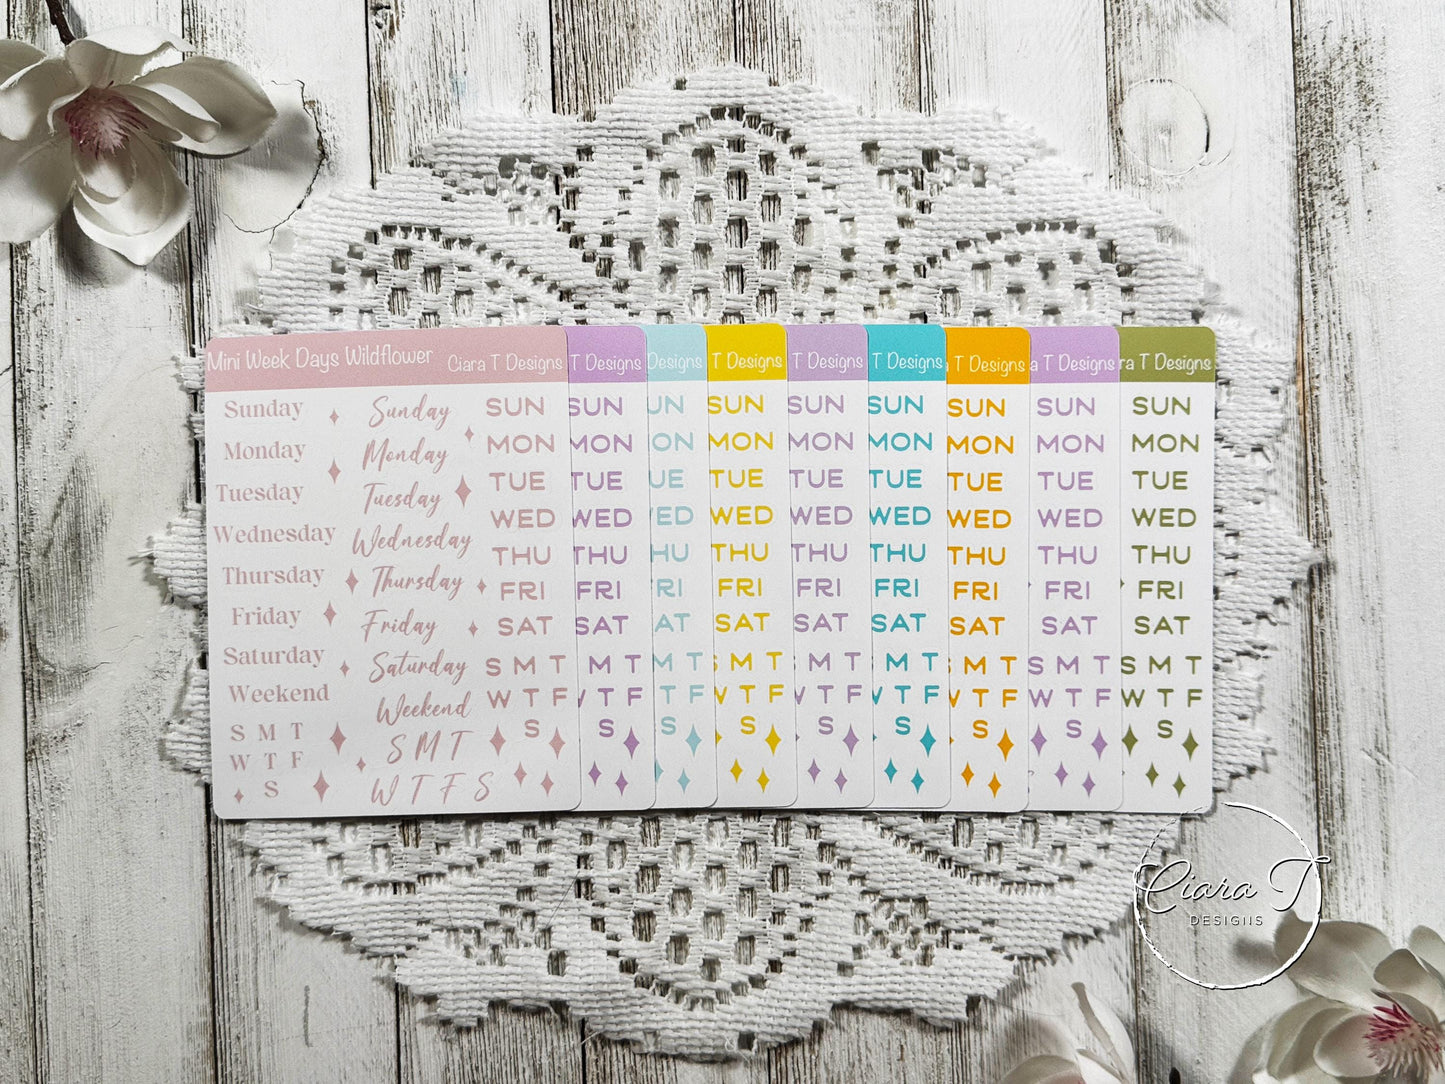 Mini Week Days Wildflower Ciara T Designs
Sunday
Monday
Tuesday
Wednesday
Thursday
Friday
Saturday
Weekend
S M T
W T F
S
Sunday
Monday
Tuesday
Wednesday
Thursday
Friday
Saturday
Weekend
S M T
W T F S
SUN
MON
TUE
WED
THU
FRI
SAT
S M T
W T F
S
T Designs
SUN
MON
TUE
WED
THU
FRI
SAT
M T
W T F
S
Designs
UN
ON
UE
ED
HU
RI
AT
M T
T F
S
T Designs
SUN
MON
TUE
WED
THU
FRI
SAT
S M T
W T F
S
T Designs
SUN
MON
TUE
WED
THU
FRI
SAT
S M T
W T F
S
T Designs
SUN
MON
TUE
WED
THU
FRI
SAT
M T
W T F
S
a T Designs
SUN
MON
TUE
WED
THU
FRI
SAT
S M T
W T F
S
a T Designs
SUN
MON
TUE
WED
THU
FRI
SAT
S M T
W T F
S
ra T Designs
SUN
MON
TUE
WED
THU
FRI
SAT
S M T
W T F
S
Ciara T
DESIGNS